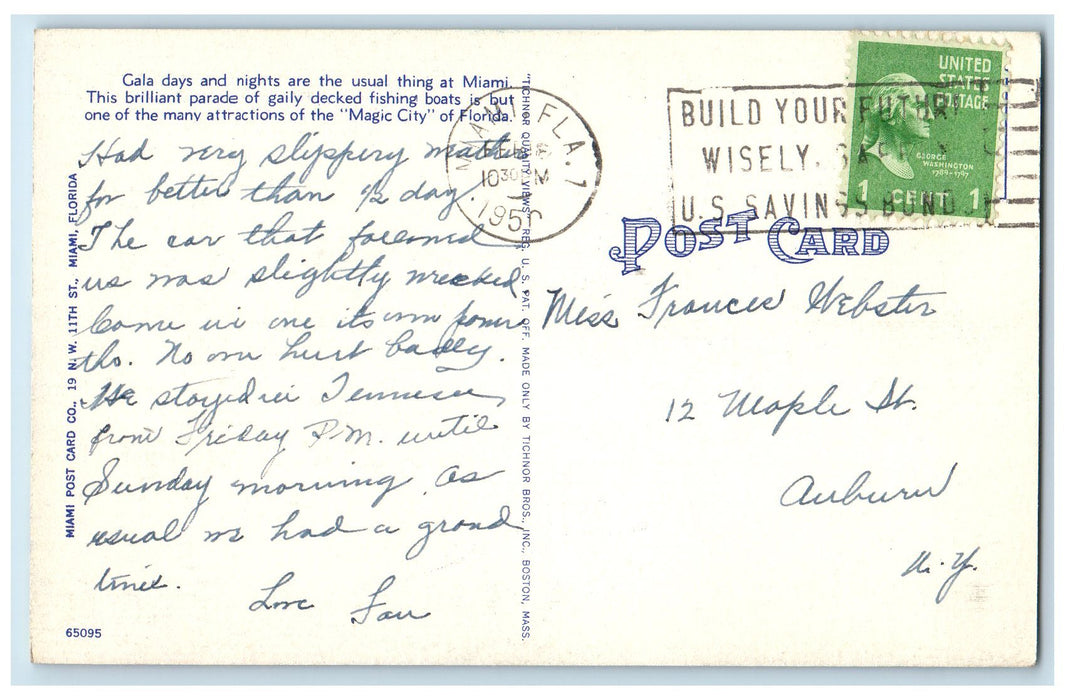 Gala days and nights are the usual thing at Miami.
This brilliant parade of gaily decked fishing boats is but
one of the many attractions of the "Magic City" of Florida.
Had very slippery weather
for better than 1/2 day.
The car that followed
us was slightly wrecked
Came in on its own power
tho. No one hurt badly.
We stayed in Tennessee
from Friday P.M. until
Sunday morning. As
usual we had a grand
time.
Love
65095
MIAMI POST CARD CO., 19 N. W. 11TH ST., MIAMI, FLORIDA
"TICHNOR QUALITY VIEWS" REG. U. S. PAT. OFF. MADE ONLY BY TICHNOR BROS., INC., BOSTON, MASS.
MIAMI FLA. 7
FEB
10 30 PM
1950
BUILD YOUR FUTURE
WISELY, SAFELY
U.S. SAVINGS BONDS
UNITED
STATES
POSTAGE
GEORGE
WASHINGTON
1789-1797
1 CENT 1
POST CARD
Miss Frances Webster
12 Maple St.
Auburn
N.Y.